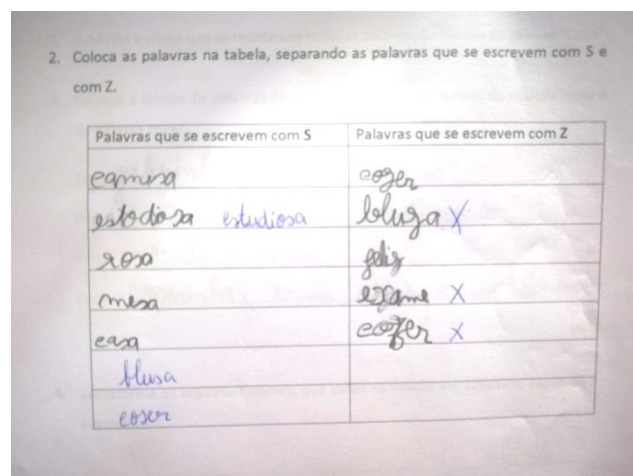 2. Coloca as palavras na tabela, separando as palavras que se escrevem com S e
com Z.
Palavras que se escrevem com S Palavras que se escrevem com Z
camisa cozer
estodiosa estudiosa bluza X
rosa feliz
mesa exame X
casa cozer X
blusa
coser